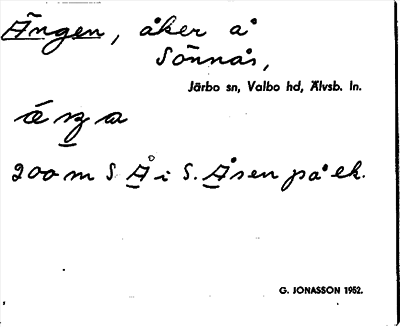 Ängen, åker å
Sönnås,
Järbo sn, Valbo hd, Älvsb. ln.
200 m S Å i S. Åsen på ek.
G. JONASSON 1952.